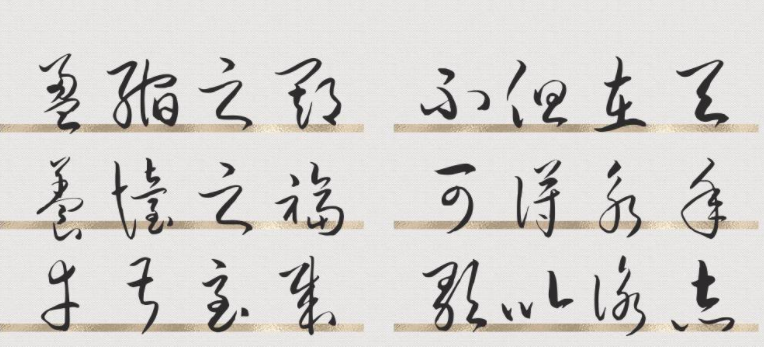 盈縮之期 不但在天
養怡之福 可得永年
幸甚至哉 歌以詠志